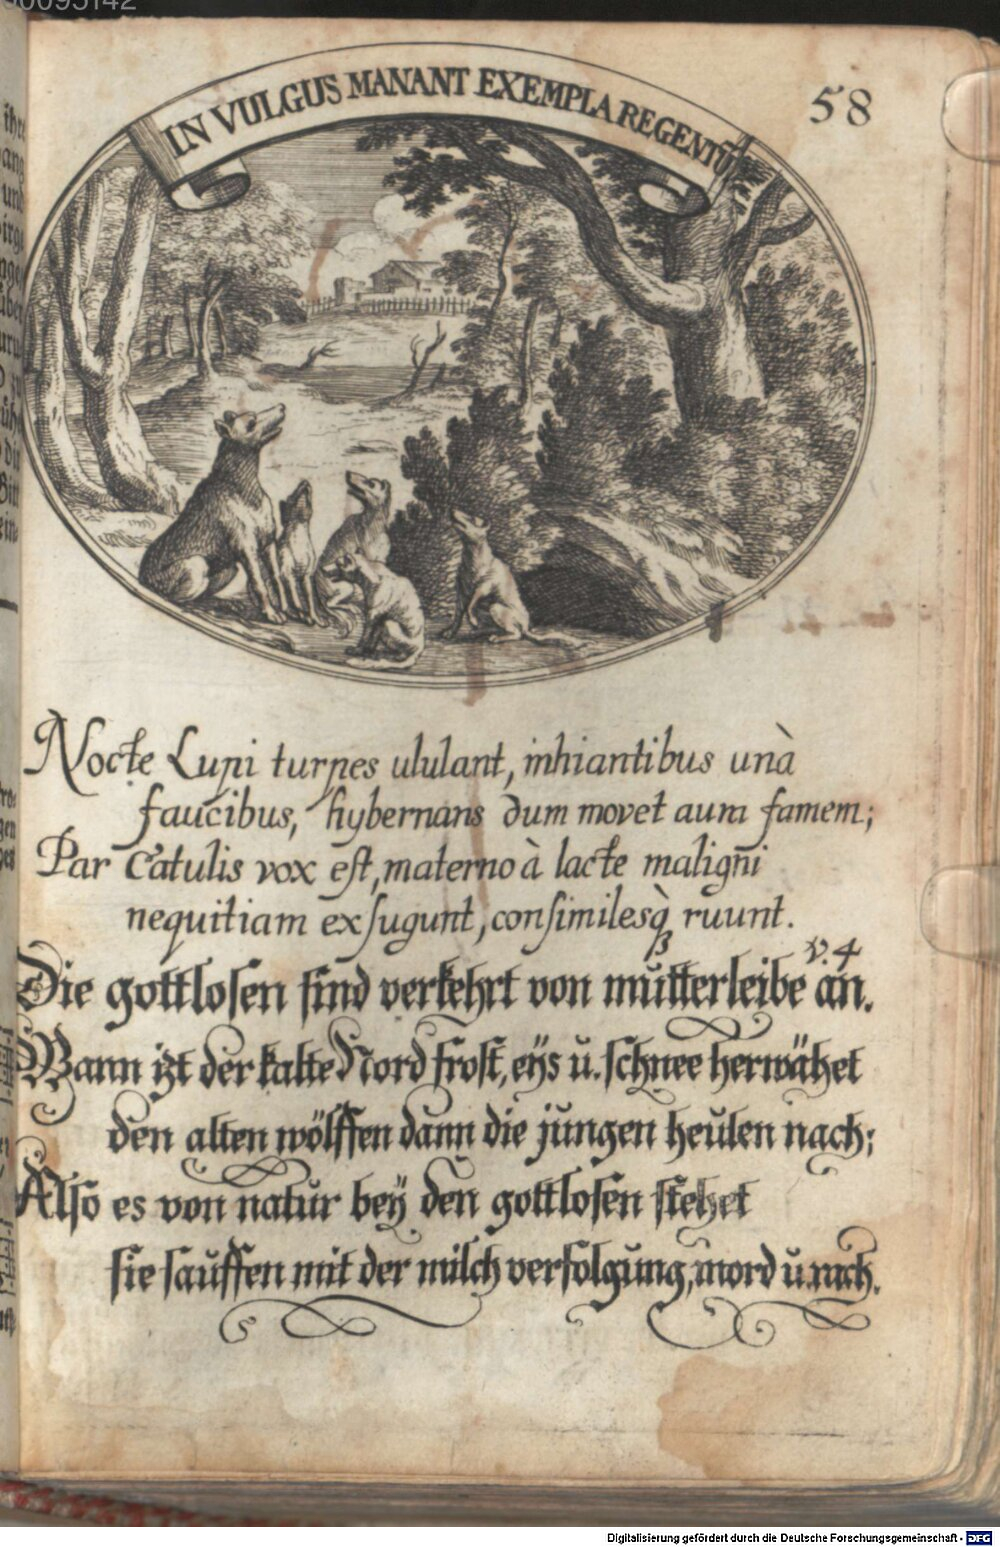 58
IN VULGUS MANANT EXEMPLA REGENTŪ
Nocte Lupi turpes ululant, inhiantibus unà
faucibus, hybernans dum movet aura famem;
Par Catulis vox est, materno à lacte maligni
nequitiam exsugunt, consimilesq̀ꝫ ruunt.
v. 4
Die gottlosen sind verkehrt von mutterleibe an.
Wann izt der kalte Nord frost, eÿs u. schnee herwähet
den alten wölffen dann die jungen heulen nach;
Also es von natur beÿ den gottlosen stehet
sie sauffen mit der milch verfolgung, mord u. rach.
Digitalisierung gefördert durch die Deutsche Forschungsgemeinschaft - DFG